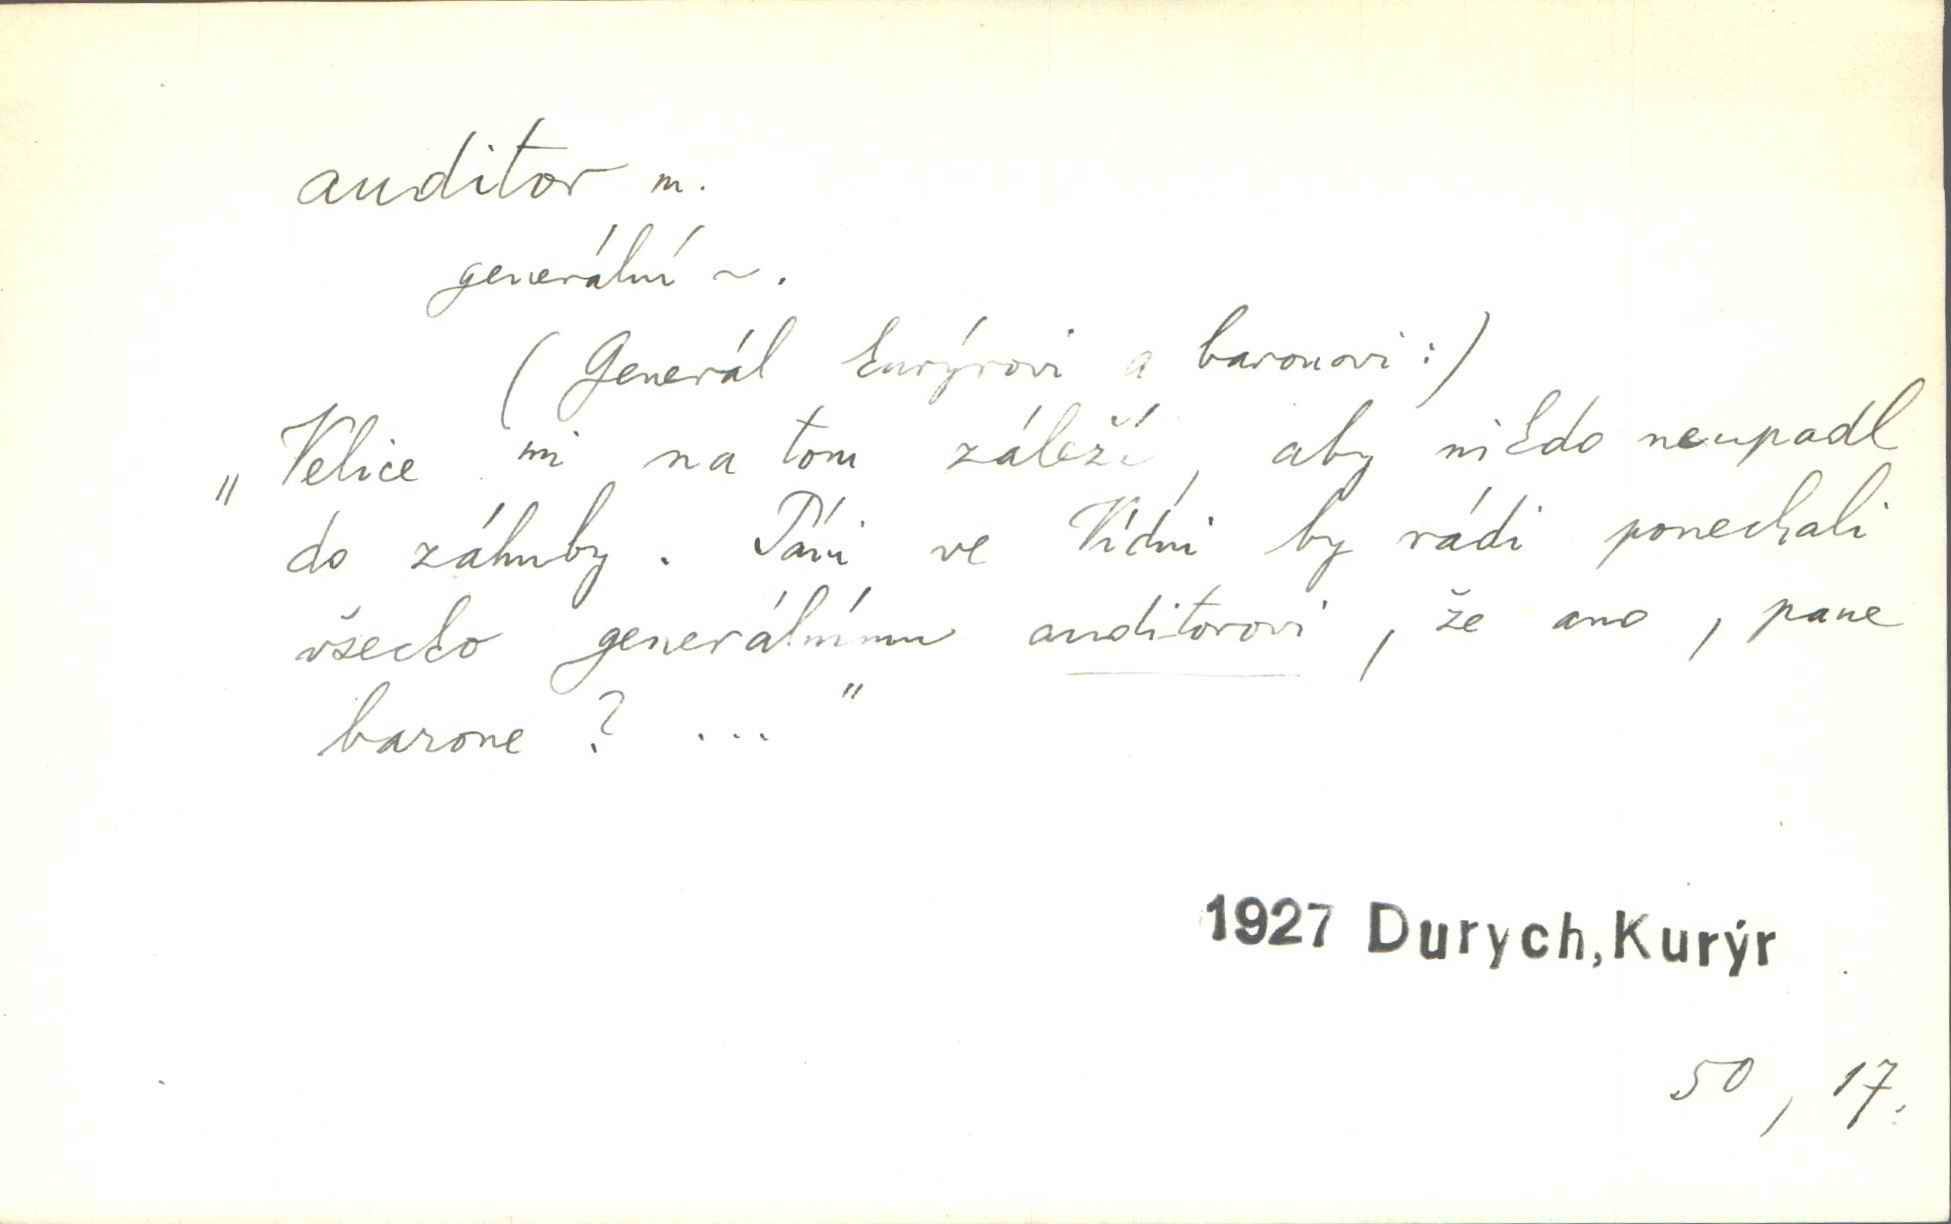 auditor m.
generální ~.
(Generál kurýrovi a baronovi:)
„Velice mi na tom záleží, aby nikdo neupadl
do záhuby. Páni ve Vídni by rádi ponechali
všecko generálnímu auditorovi, že ano, pane
barone? ..."
1927 Durych, Kurýr
50, 17.